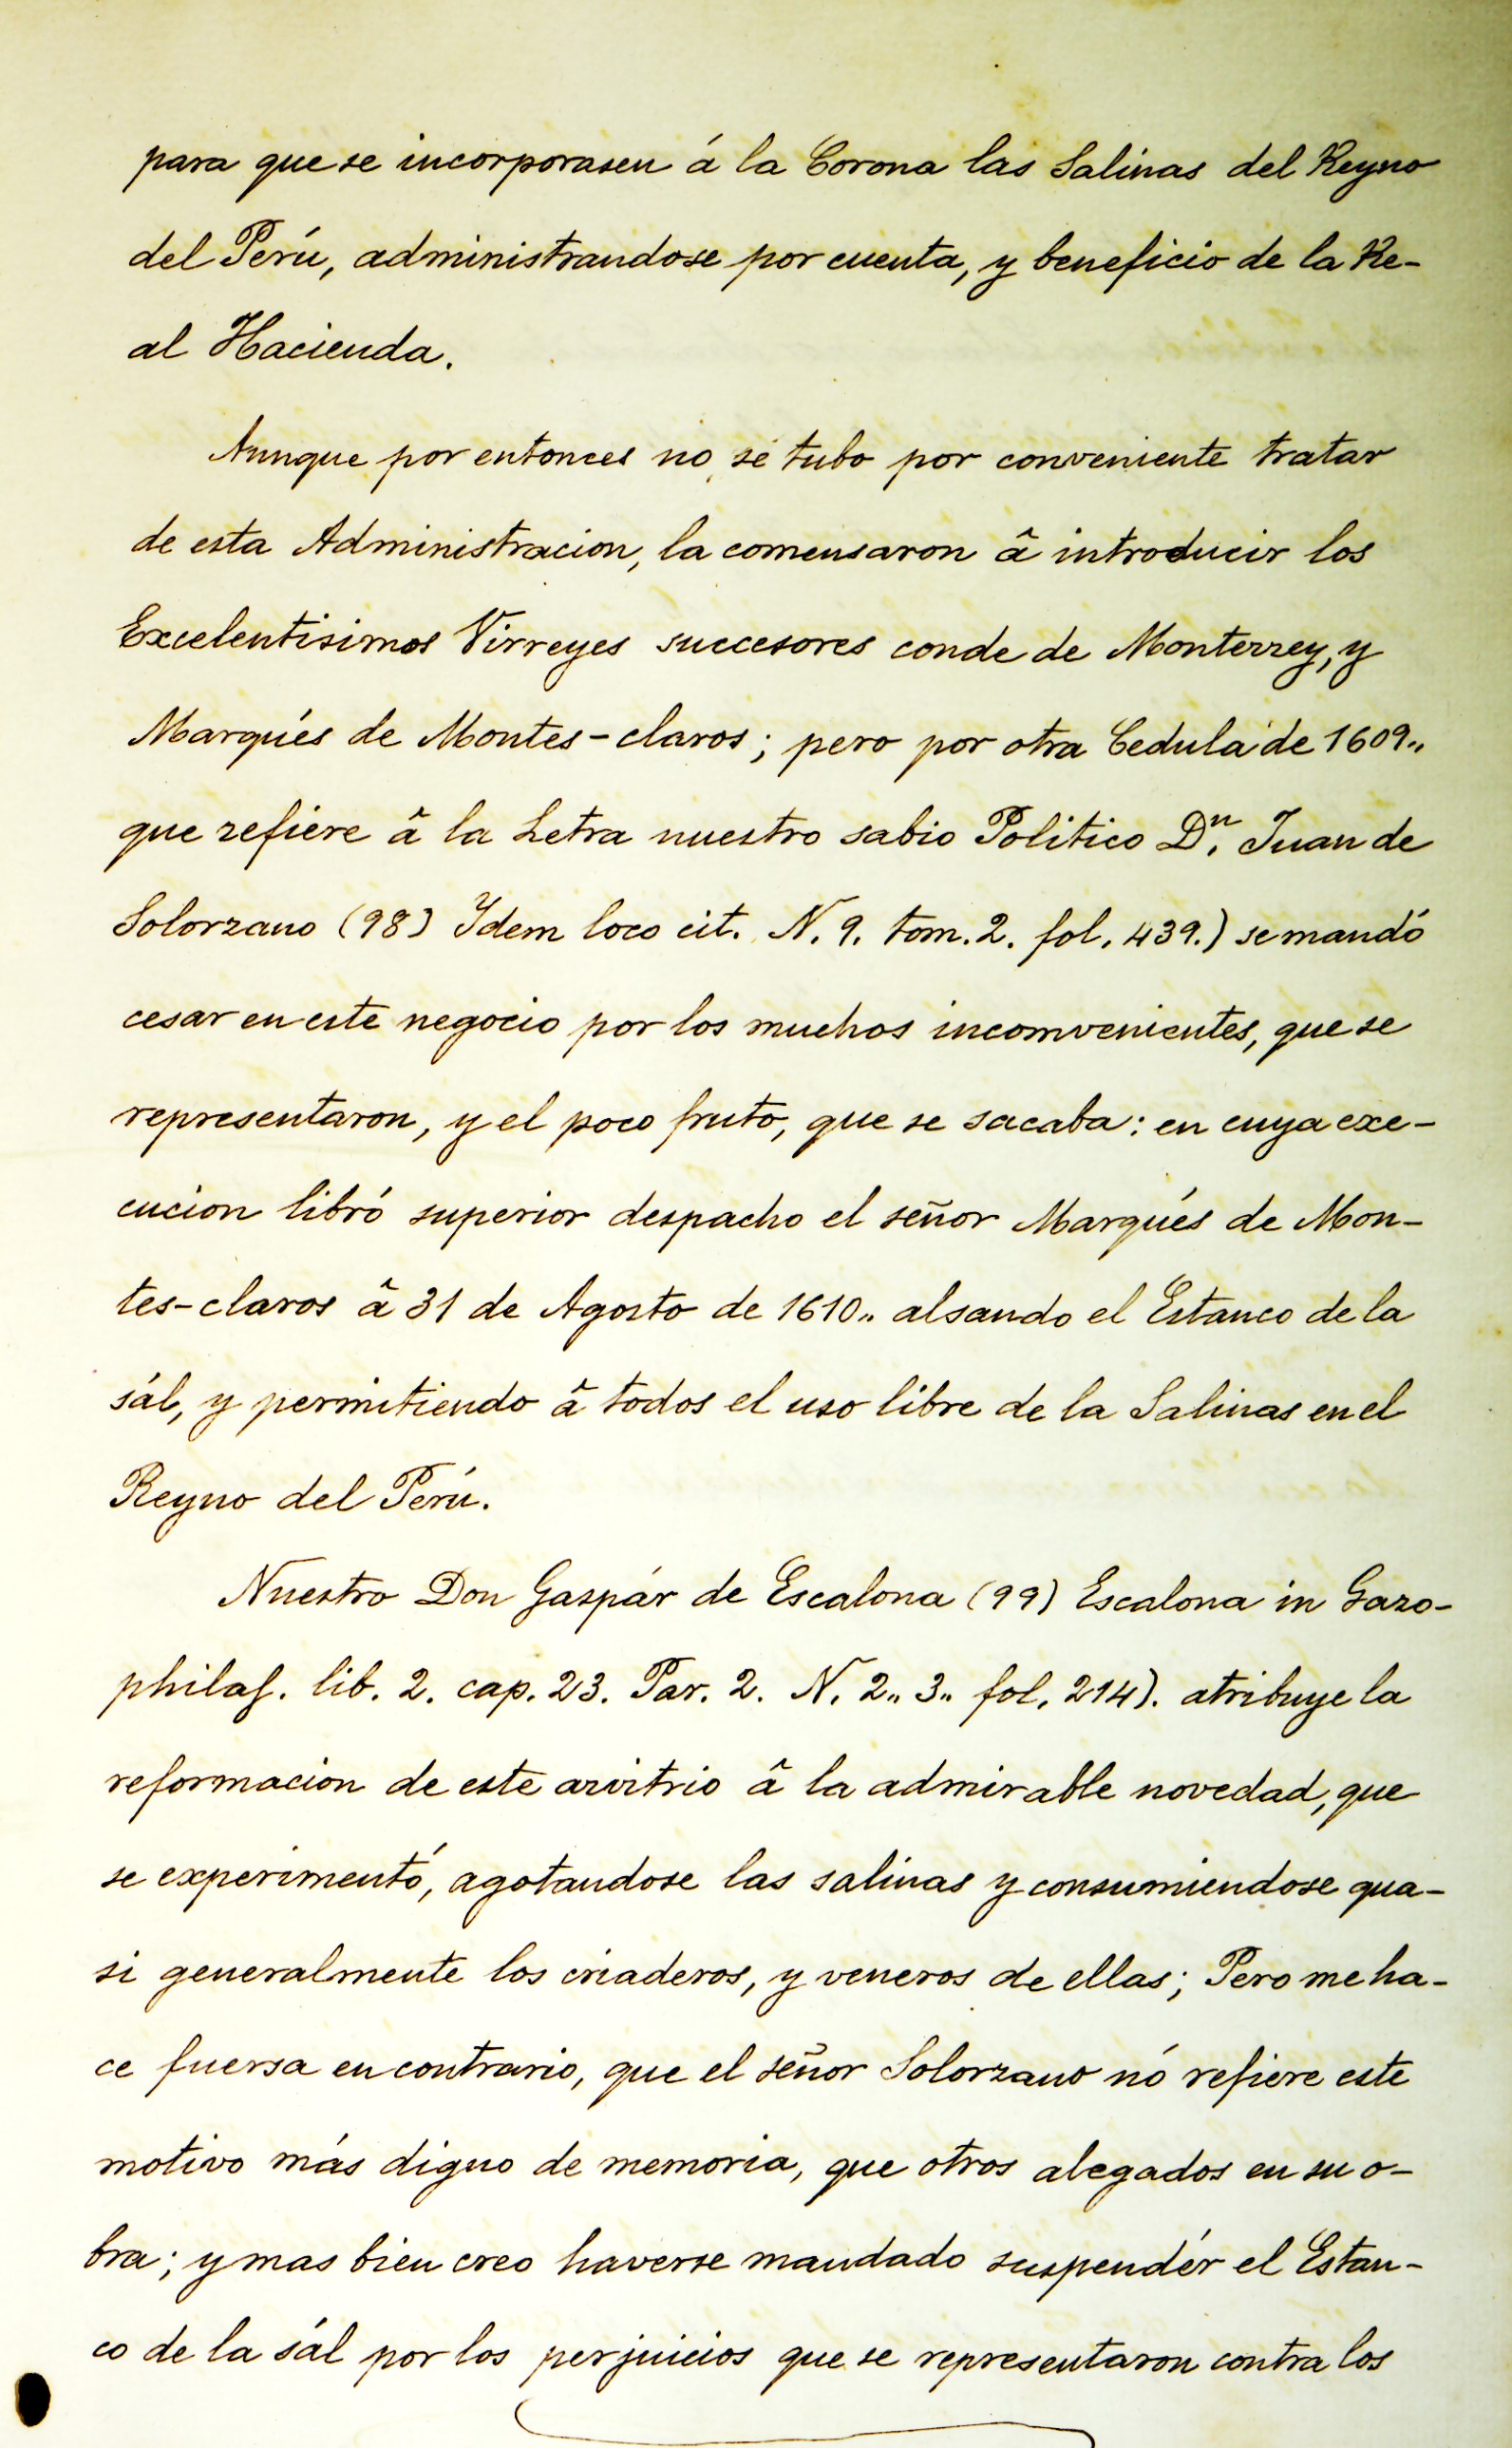 para que se incorporasen á la Corona las Salinas del Reyno
del Perú, administrandose por cuenta, y beneficio de la Re-
al Hacienda.
Aunque por entonces no se tubo por conveniente tratar
de esta Administracion, la comensaron â introducir los
Excelentisimos Virreyes succesores conde de Monterrey, y
Marqués de Montes-claros; pero por otra Cedula de 1609„
que refiere â la Letra nuestro sabio Politico Dn. Juan de
Solorzano (98) Idem loco cit. N. 9. tom. 2. fol. 439.) se mandó
cesar en este negocio por los muchos incomvenientes, que se
representaron, y el poco fruto, que se sacaba: en cuya exe-
cucion libró superior despacho el señor Marqués de Mon-
tes-claros â 31 de Agosto de 1610„ alsando el Estanco de la
sál, y permitiendo â todos el uso libre de la Salinas en el
Reyno del Perú.
Nuestro Don Gaspár de Escalona (99) Escalona in Gazo-
philaf. lib. 2. cap. 23. Par. 2. N. 2„ 3„ fol. 214). atribuye la
reformacion de este arvitrio â la admirable novedad, que
se experimentó, agotandose las salinas y consumiendose qua-
si generalmente los criaderos, y veneros de ellas; Pero me ha-
ce fuersa en contrario, que el señor Solorzano nó refiere este
motivo más digno de memoria, que otros alegados en su o-
bra; y mas bien creo haverse mandado suspendér el Estan-
co de la sál por los perjuicios que se representaron contra los